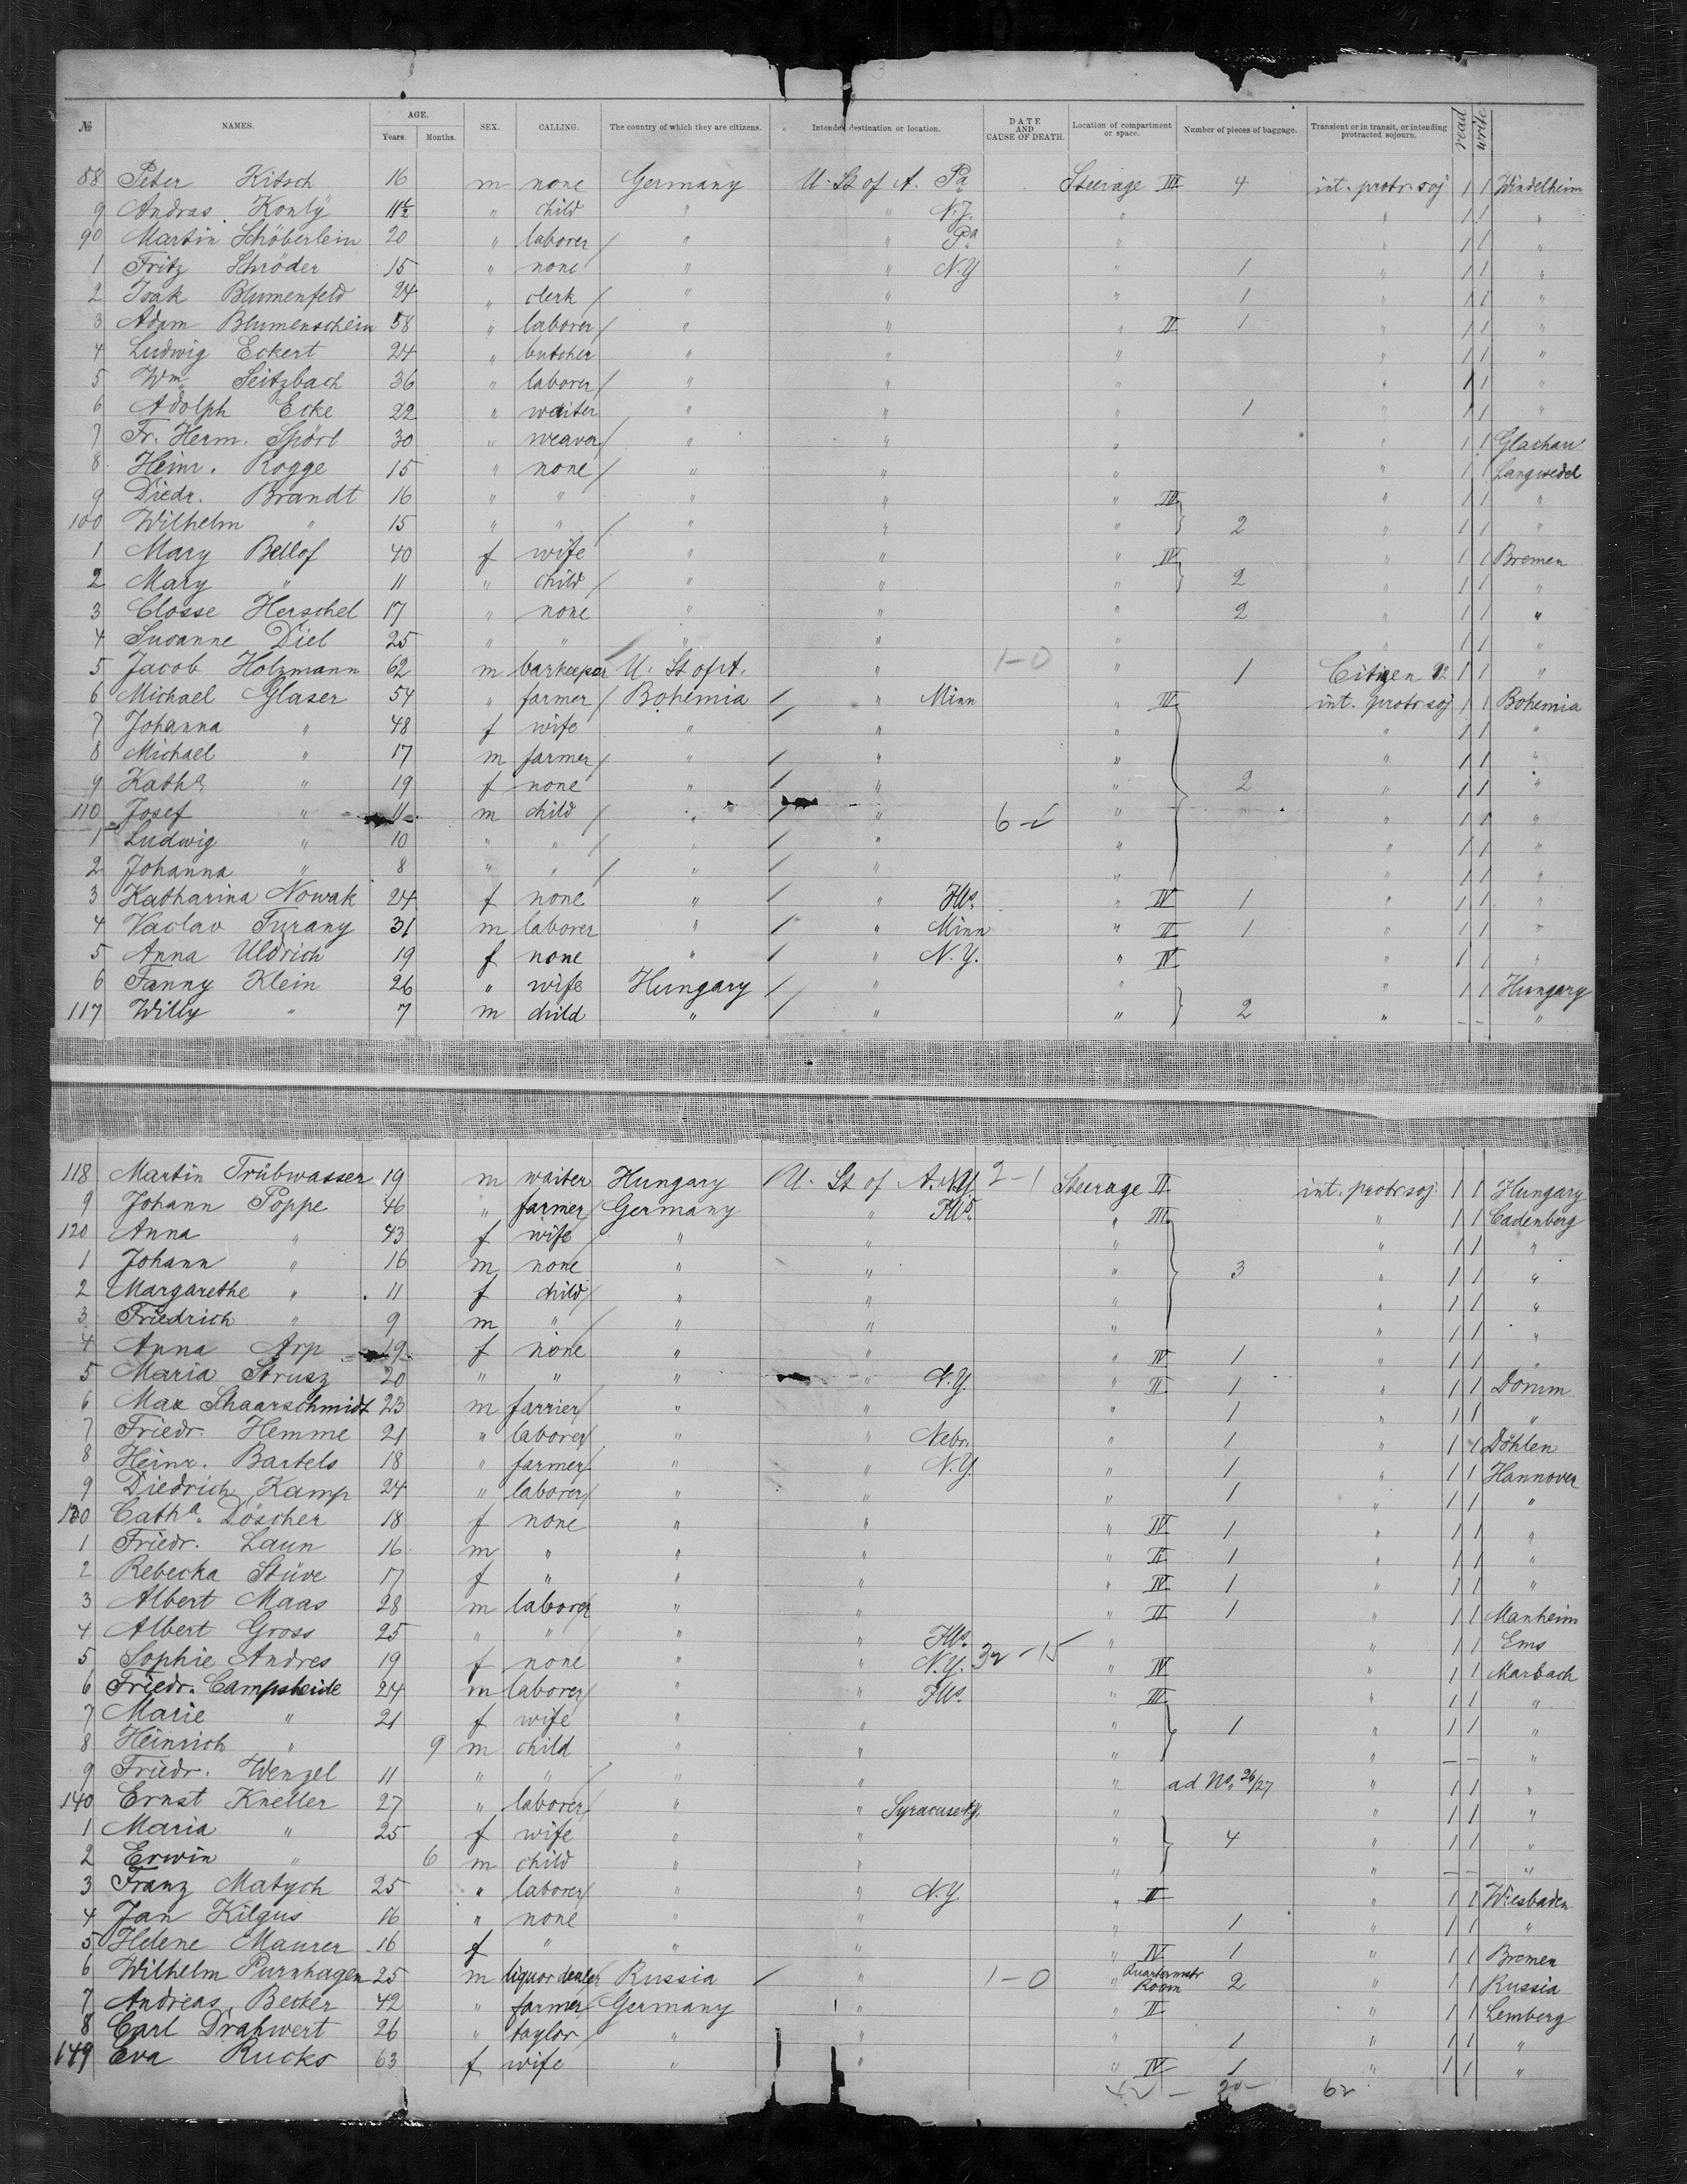 № NAMES. AGE. Years. Months. SEX. CALLING. The country of which they are citizens. Intended destination or location. DATE AND CAUSE OF DEATH. Location of compartment or space. Number of pieces of baggage. Transient or in transit, or intending protracted sojourn. read write
88 Peter Kitsch 16 m none Germany U. St of A. Pa Steerage III 4 int. protr. soj 1 1 Windelheim
9 Andras Konly 11½ " child " " N.J. " " 1 1 "
90 Martin Schöberlein 20 " laborer / " " Pa " " 1 1 "
1 Fritz Schröder 15 " none " " N.Y " 1 " 1 1 "
2 Isak Blumenfeld 24 " clerk / " " " 1 " 1 1 "
3 Adam Blumenschein 58 " laborer / " " " II 1 " 1 1 "
4 Ludwig Eckert 24 " butcher " " " " 1 1 "
5 Wm Seitzbach 36 " laborer / " " " " 1 1 "
6 Adolph Ecke 22 " waiter " " " 1 " 1 1 "
7 Fr. Herm. Spörl 30 " weaver / " " " " 1 1 Glachau
8 Heinr. Rogge 15 " none / " " " " 1 1 Langwedel
9 Diedr. Brandt 16 " " " " " III " 1 1 "
100 Wilhelm " 15 " " / " " " 2 " 1 1 "
1 Mary Bellof 40 f wife " " " IV " 1 1 Bremen
2 Mary " 11 " child / " " " 2 " 1 1 "
3 Closse Herschel 17 " none " " " 2 " 1 1 "
4 Susanne Diel 25 " " " " " " 1 1 "
5 Jacob Holzmann 62 m barkeeper U. St of A. " 1-0 " 1 Citizen 92 1 1 "
6 Michael Glaser 54 " farmer / Bohemia / " Minn " III int. protr soj 1 1 Bohemia
7 Johanna " 48 f wife " / " " " 1 1 "
8 Michael " 17 m farmer / " / " " " 1 1 "
9 Katha " 19 f none " / " " 2 " 1 1 "
110 Josef " 11 m child / " / " 6-2 " " 1 1 "
1 Ludwig " 10 " " / " / " " " 1 1 "
2 Johanna " 8 " " / " / " " " 1 1 "
3 Katharina Nowak 24 f none " / " Ills. " IV 1 " 1 1 "
4 Vaclav Turany 31 m laborer " / " Minn " II 1 " 1 1 "
5 Anna Uldrich 19 f none " / " N.Y. " IV " 1 1 "
6 Fanny Klein 26 " wife Hungary / " " " 1 1 Hungary
117 Willy " 7 m child " / " " 2 " - - "
118 Martin Trübwasser 19 m waiter Hungary / U. St of A. N.Y. 2-1 Steerage II int. protr soj. 1 1 Hungary
9 Johann Poppe 46 " farmer / Germany " Ills. " III " 1 1 Cadenberg
120 Anna " 43 f wife / " " " " 1 1 "
1 Johann " 16 m none " " " 3 " 1 1 "
2 Margarethe " 11 f child / " " " " 1 1 "
3 Friedrich " 9 m " / " " " " 1 1 "
4 Anna Arp 19 f none " " " IV 1 " 1 1 "
5 Maria Strusz 20 " " " " N.Y. " II 1 " 1 1 Dorum
6 Max Schaarschmidt 23 m farrier / " " " 1 " 1 1 "
7 Friedr. Hemme 21 " laborer / " " Nebr. " 1 " 1 1 Döhlen
8 Heinr. Bartels 18 " farmer / " " N.Y. " 1 " 1 1 Hannover
9 Diedrich Kamp 24 " laborer / " " " 1 " 1 1 "
130 Catha. Döscher 18 f none " " " IV 1 " 1 1 "
1 Friedr. Laun 16 m " " " " II 1 " 1 1 "
2 Rebecka Stüve 17 f " " " " IV 1 " 1 1 "
3 Albert Maas 28 m laborer " " " II 1 " 1 1 Manheim
4 Albert Gross 25 " " / " " Ills. " " 1 1 Ems
5 Sophie Andres 19 f none " " N.Y. 32-15 " IV " 1 1 Marbach
6 Friedr. Campsheide 24 m laborer / " " Ills. " III " 1 1 "
7 Marie " 21 f wife " " " 1 " 1 1 "
8 Heinrich " 9 m child " " " " - - "
9 Friedr. Wenzel 11 " " / " " " ad No. 26/27 " 1 1 "
140 Ernst Kneller 27 " laborer / " " Syracuse N.Y. " " 1 1 "
1 Maria " 25 f wife " " " 4 " 1 1 "
2 Erwin " 6 m child " " " " - - "
3 Franz Matych 25 " laborer / " " N.Y " II " 1 1 Wiesbaden
4 Jan Kilgus 16 " none " " " 1 " 1 1 "
5 Helene Maurer 16 f " " " " IV 1 " 1 1 Bremen
6 Wilhelm Purnhagen 25 m liquor dealer Russia / " 1-0 " Quartermstr Room 2 " 1 1 Russia
7 Andreas Becker 42 " farmer / Germany " " II " 1 1 Lemberg
8 Carl Drahwert 26 " taylor / " " " 1 " 1 1 "
149 Eva Rucks 63 f wife " " " IV 1 " 1 1 "
42 - 20 - 62